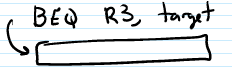 BEQ R3, target